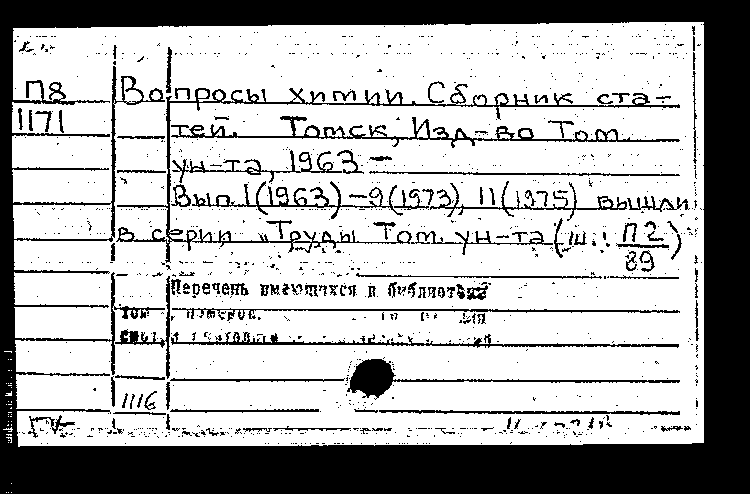 П8
1171
Вопросы химии. Сборник ста-
тей. Томск, Изд-во Том.
ун-та, 1963 –
Вып. 1(1963) – 9(1973), 11(1975) вышли
в серии „Труды Том. ун-та (ш.: П2
89)
Перечень имеющихся в библиотеке
том , номеров.
1116